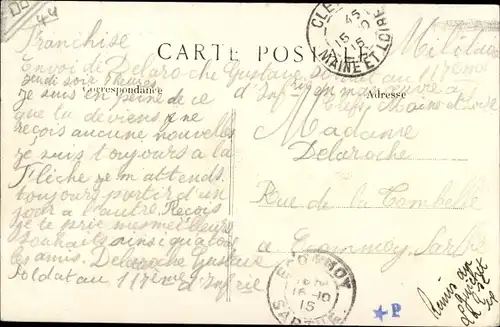 44
Franchise Militaire
CARTE POSTALE
Envoi de Delaroche Gustave Soldat au 117ème
d'Inf en manœuvre à
Clefs Maine et Loire
Correspondance
Adresse
jeudi soir 7 heures
je suis en peine de ce
que tu deviens je ne
reçois aucune nouvelles
je suis toujours a la
Flèche je m attends
toujours partir d'un
jour a l'autre. Reçois
je te prie mes meilleurs
souhaits ainsi qu'a tous
les amis. Delaroche Gustave
Soldat au 117ème d'Infrie
Madame
Delaroche
Rue de la Tombelle
a Ecommoy. Sarthe
CLEFS
15-10
15
MAINE ET LOIRE
ECOMMOY
16-10
15
SARTHE
P